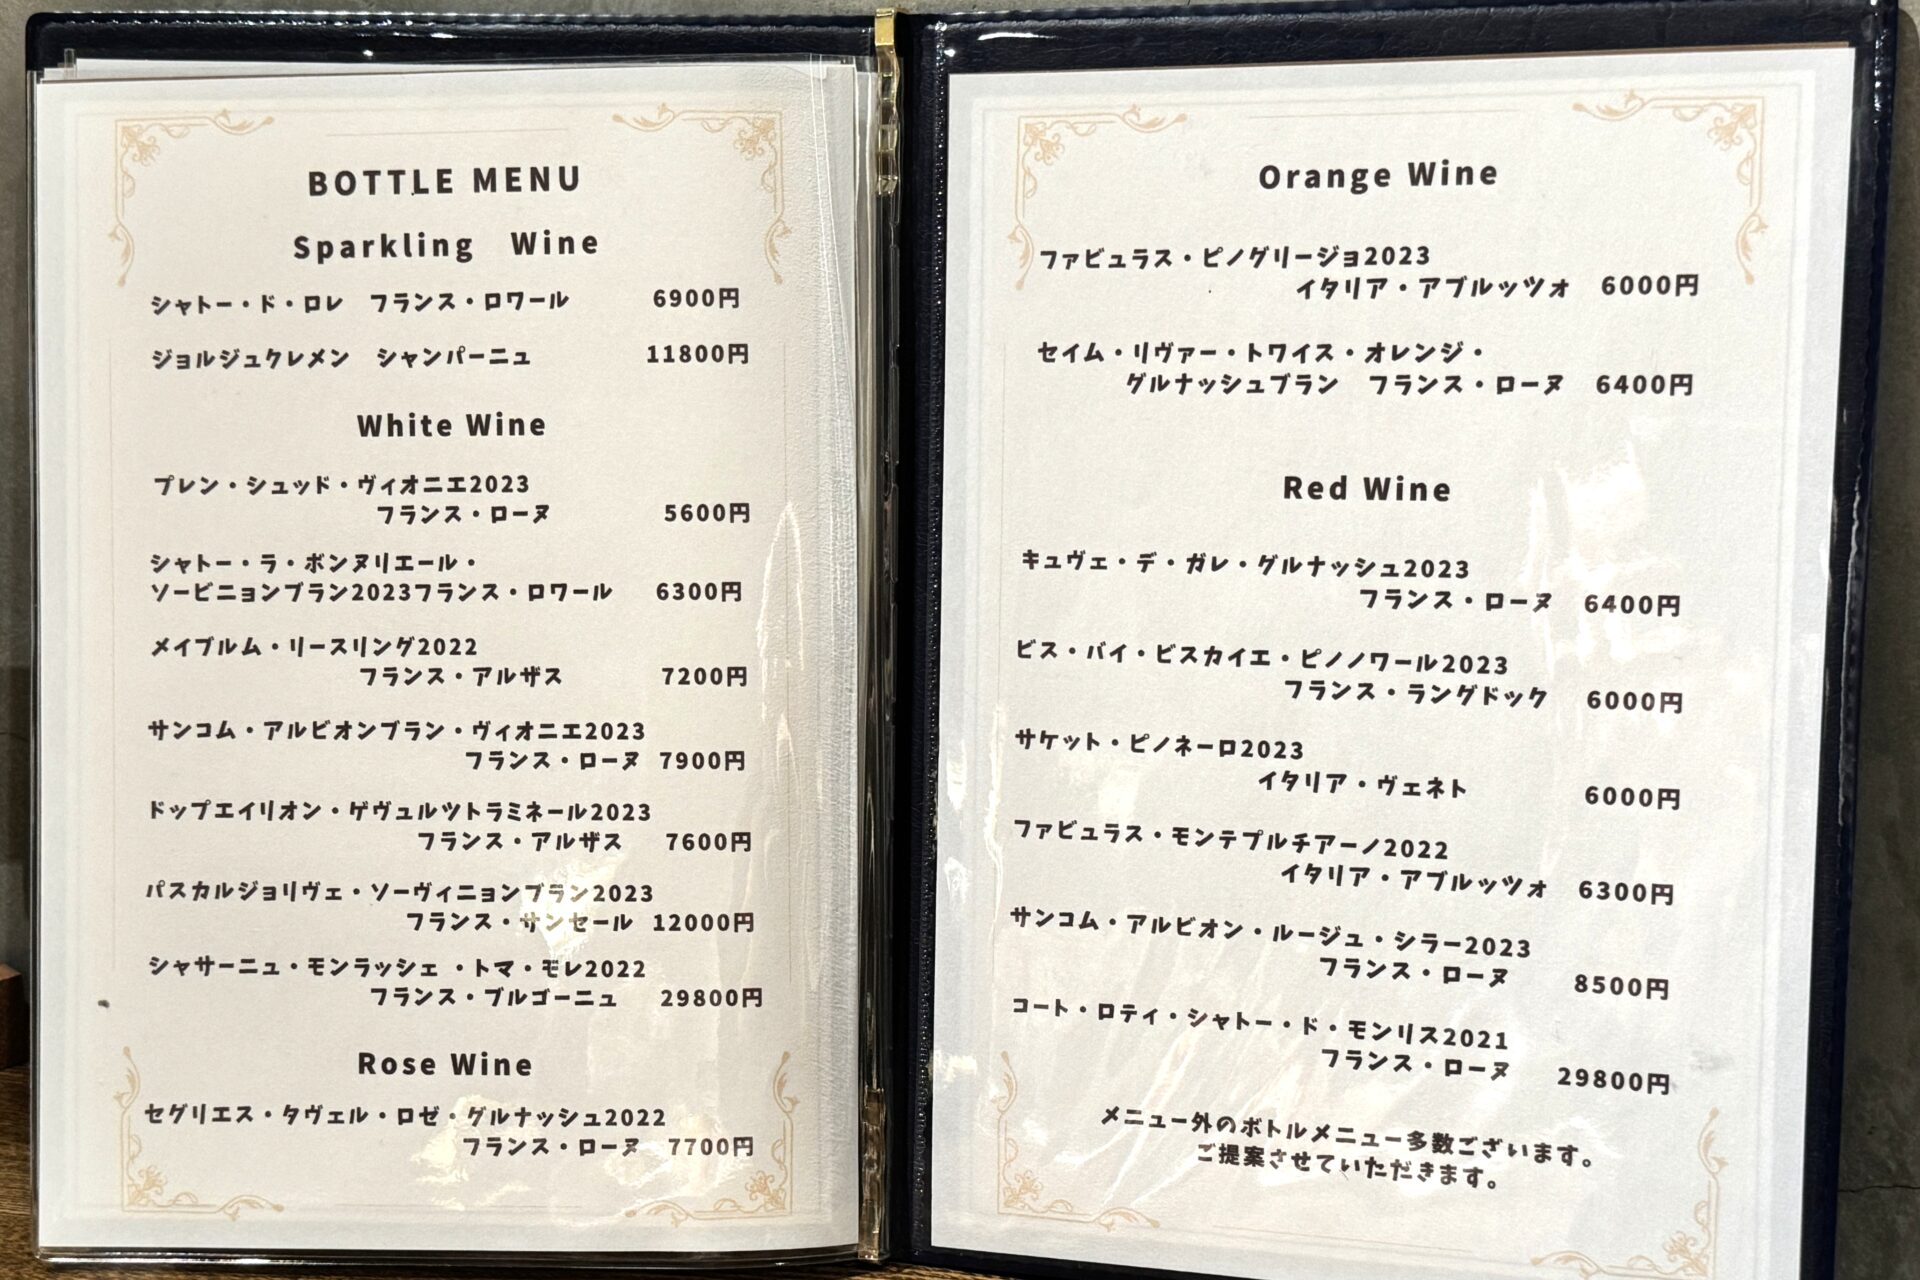 BOTTLE MENU
Sparkling Wine
シャトー・ド・ロレ フランス・ロワール 6900円
ジョルジュクレメン シャンパーニュ 11800円
White Wine
プレン・シュッド・ヴィオニエ2023
フランス・ローヌ 5600円
シャトー・ラ・ボンヌリエール・
ソービニョンブラン2023フランス・ロワール 6300円
メイブルム・リースリング2022
フランス・アルザス 7200円
サンコム・アルビオンブラン・ヴィオニエ2023
フランス・ローヌ 7900円
ドップエイリオン・ゲヴュルツトラミネール2023
フランス・アルザス 7600円
パスカルジョリヴェ・ソーヴィニョンブラン2023
フランス・サンセール 12000円
シャサーニュ・モンラッシェ ・トマ・モレ2022
フランス・ブルゴーニュ 29800円
Rose Wine
セグリエス・タヴェル・ロゼ・グルナッシュ2022
フランス・ローヌ 7700円
Orange Wine
ファビュラス・ピノグリージョ2023
イタリア・アブルッツォ 6000円
セイム・リヴァー・トワイス・オレンジ・
グルナッシュブラン フランス・ローヌ 6400円
Red Wine
キュヴェ・デ・ガレ・グルナッシュ2023
フランス・ローヌ 6400円
ビス・バイ・ビスカイエ・ピノノワール2023
フランス・ラングドック 6000円
サケット・ピノネーロ2023
イタリア・ヴェネト 6000円
ファビュラス・モンテプルチアーノ2022
イタリア・アブルッツォ 6300円
サンコム・アルビオン・ルージュ・シラー2023
フランス・ローヌ 8500円
コート・ロティ・シャトー・ド・モンリス2021
フランス・ローヌ 29800円
メニュー外のボトルメニュー多数ございます。
ご提案させていただきます。